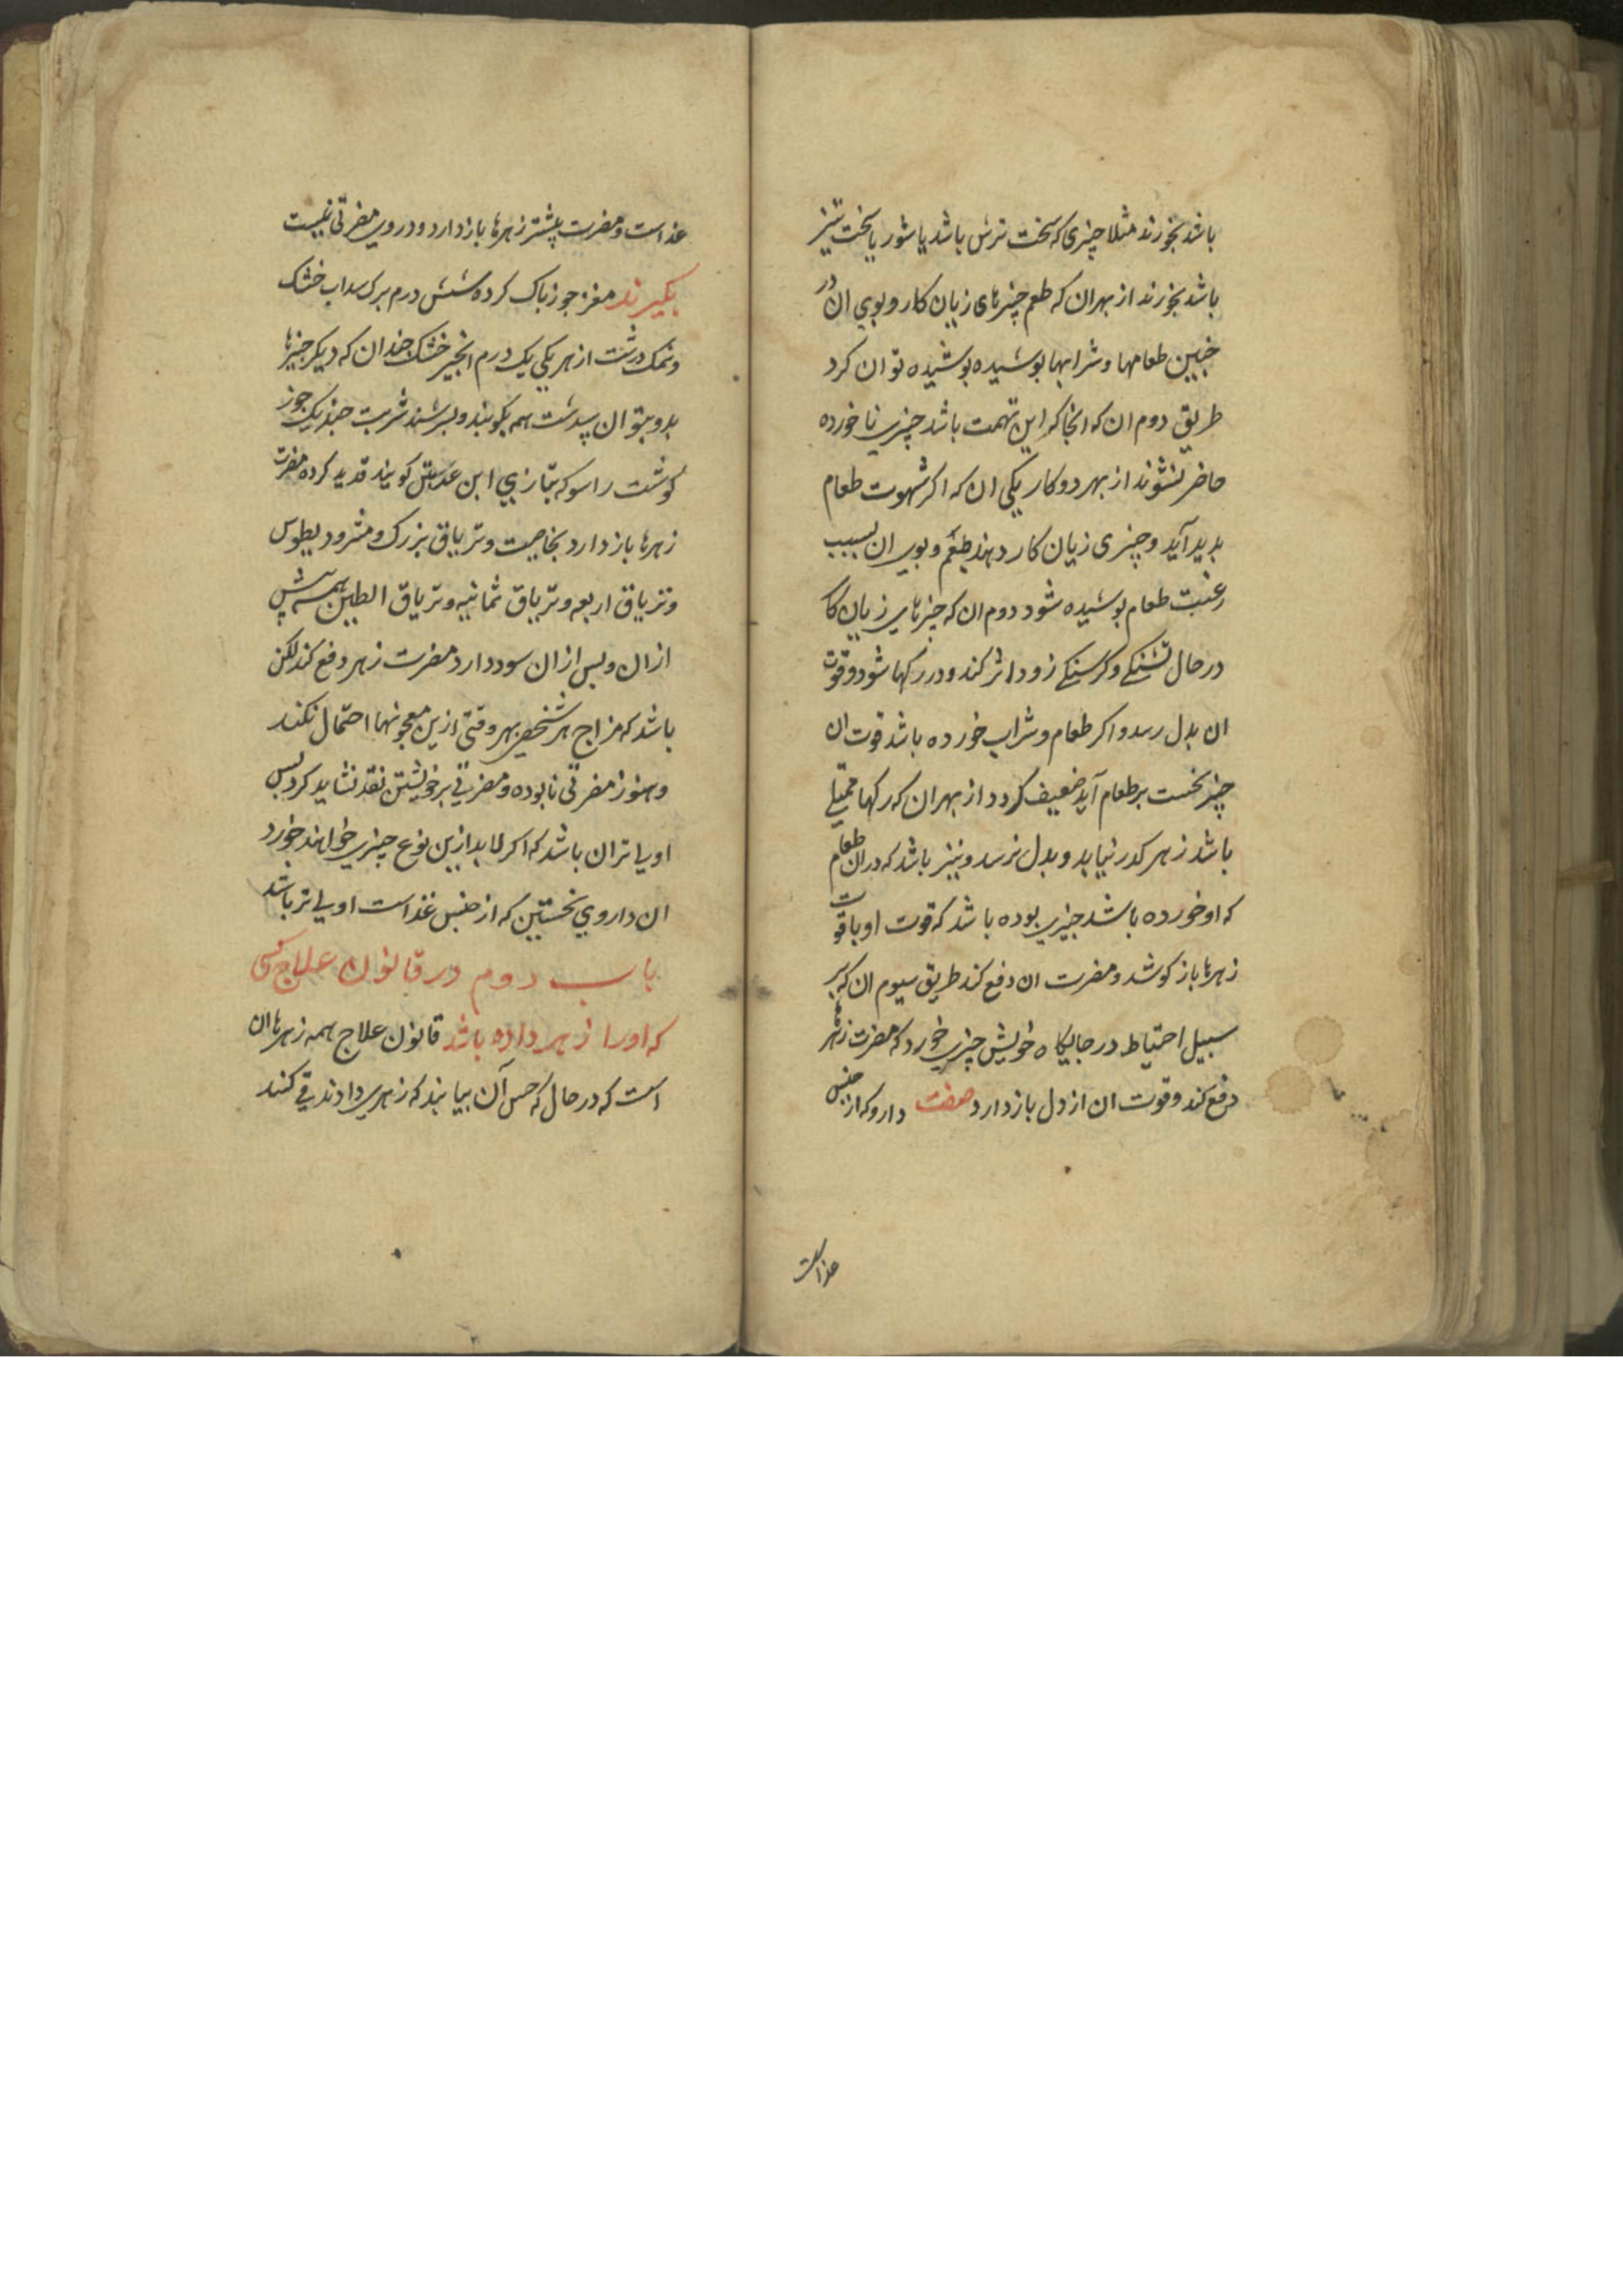 باشد نخورند مثلا چیزی که سخت ترش باشد یا شور یا سخت تیز
باشد نخورند از بهر ان که طعم چیزهای زیان کار و بوی ان در
جنین طعامها و شرابها بوشیده بوشیده توان کرد
طریق دوم ان که انجا که این تهمت باشد چیزی ناخورده
حاضر نشوند از بهر دو کار یکی ان که اکر شهوت طعام
بدید آید و چیزی زیان کار دهند طعم و بوی ان بسبب
رغبت طعام بوشیده شود دوم ان که چیزهای زیان کا
در حال تشنکی و کرسنکی زود اثر کند و در رکها شود و قوت
ان بدل رسد و اکر طعام و شراب خورده باشد قوت ان
چیز نخست بر طعام آید ضعیف کردد از بهر ان که رکها ممتلی
باشد زهر کذر نیابد و بدل نرسد و نیز باشد که در ان طعام
که او خورده باشد چیزی بوده باشد که قوت او با قوت
زهرها باز کوشد و مضرت ان دفع کند طریق سیوم ان که بر
سبیل احتیاط در جایکاه خویش چیزی خورد که مضرت زهرها
دفع کند و قوت ان از دل باز دارد صفت دارو که از جنس
غذاست
غذاست و مضرت بیشتر زهرها باز دارد و در وی مضرتی نیست
بکیرند مغز جوز باک کرده شش درم برک سداب خشک
و نمک درشت از هر یکی یک درم انجیر خشک جندان که دیکر چیزها
بدو بتوان سرشت همه بکوبند و بسرشند شربت جند یک جوز
کوشت راسو که بتازی ابن عرس کویند قدید کرده مضرت
زهرها باز دارد بخاصیت و تریاق بزرک و مثرودیطوس
و تریاق اربعه و تریاق ثمانیه و تریاق الطین همه پیش
از ان و پس از ان سود دارد مضرت زهر دفع کند لکن
باشد که مزاج هر شخص بهر وقتی ازین معجونها احتمال نکند
و هنوز مضرتی نابوده و مضرتی بر خویشتن نقد نشاید کرد پس
اولی تر ان باشد که اکر لابد ازین نوع چیزی خواهند خورد
ان داروی نخستین که از جنس غذاست اولی تر باشد
باب دوم در قانون علاج کسی
که او را زهر داده باشد قانون علاج همه زهرها ان
است که در حال که حس آن بیابند که زهری دادند قی کنند